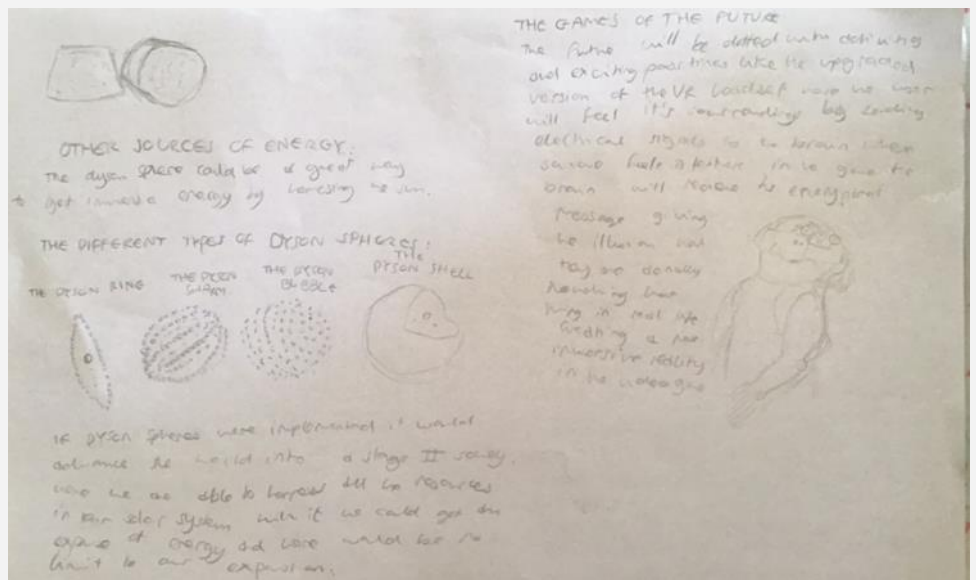 OTHER SOURCES OF ENERGY:
The dyson sphere could be a great way
to get immense energy by harvesing the sun.
THE DIFFERENT TYPES OF DYSON SPHERES:
THE DYSON RING
THE DYSON SWARM
THE DYSON BUBBLE
THE DYSON SHELL
IF DYSON spheres were implemented it would
advance the world into a stage II society.
were we are able to harness all the resources
in our solar system with it we could get an
of energy and there would be no
limit to our expansion.
THE GAMES OF THE FUTURE
The future will be dotted with
and exciting pass times like the upgraded
version of the VR were the user
will feel it's surrounding by sending
electrical signals to the brain when
feels a texture in the game the
brain will receive the
message giving
the illusion that
they are
touching that
thing in real life
creating a
immersive reality
in the